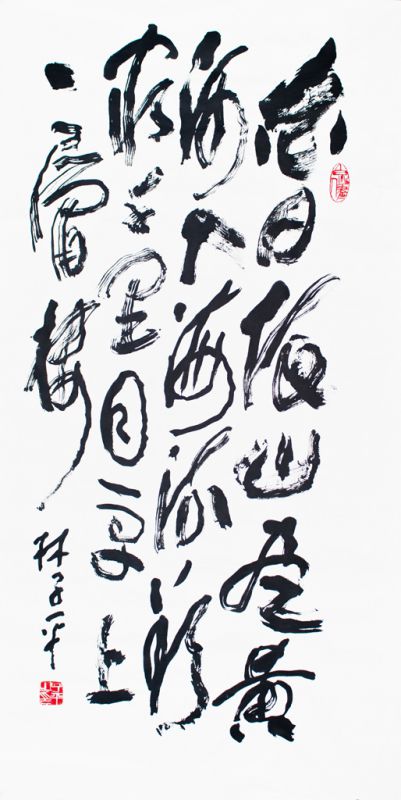 白日依山尽黄
河入海流欲
窮千里目更上
一層楼
林子平